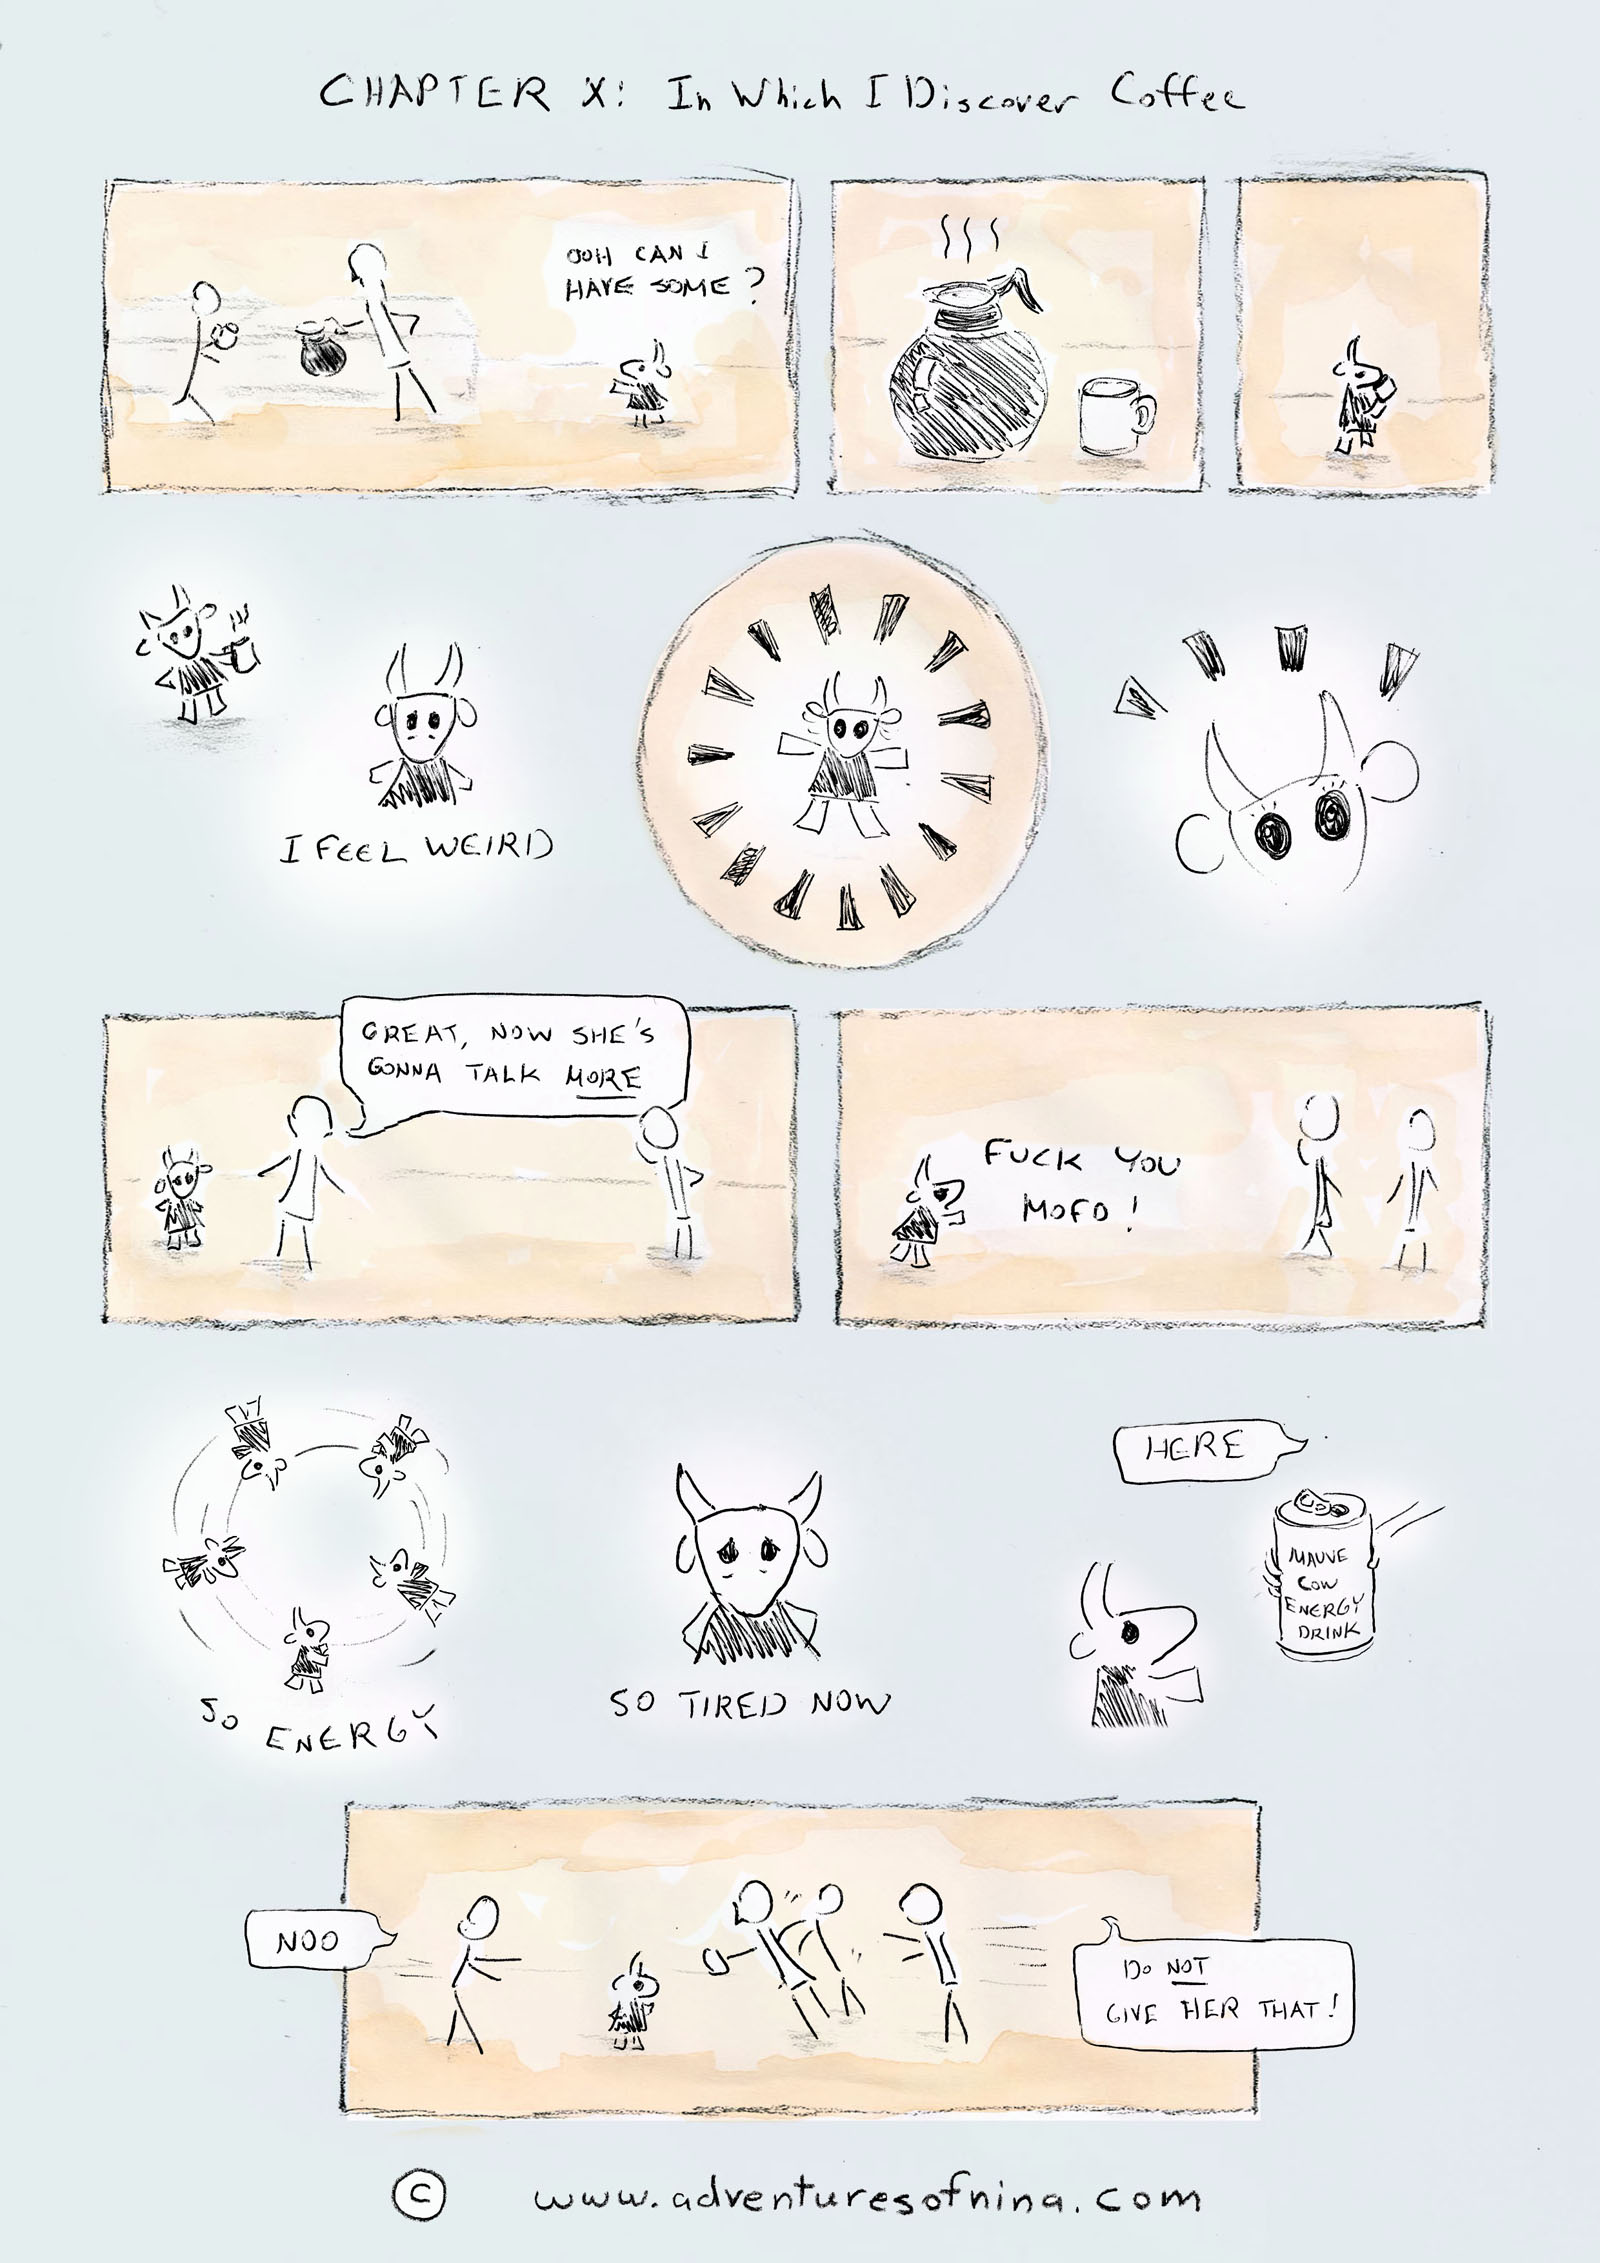 CHAPTER X: In Which I Discover Coffee
OOH CAN I
HAVE SOME?
I FEEL WEIRD
GREAT, NOW SHE'S
GONNA TALK MORE
FUCK YOU
MOFO!
SO ENERGY
SO TIRED NOW
HERE
MAUVE
COW
ENERGY
DRINK
NOO
DO NOT
GIVE HER THAT!
© www.adventuresofnina.com